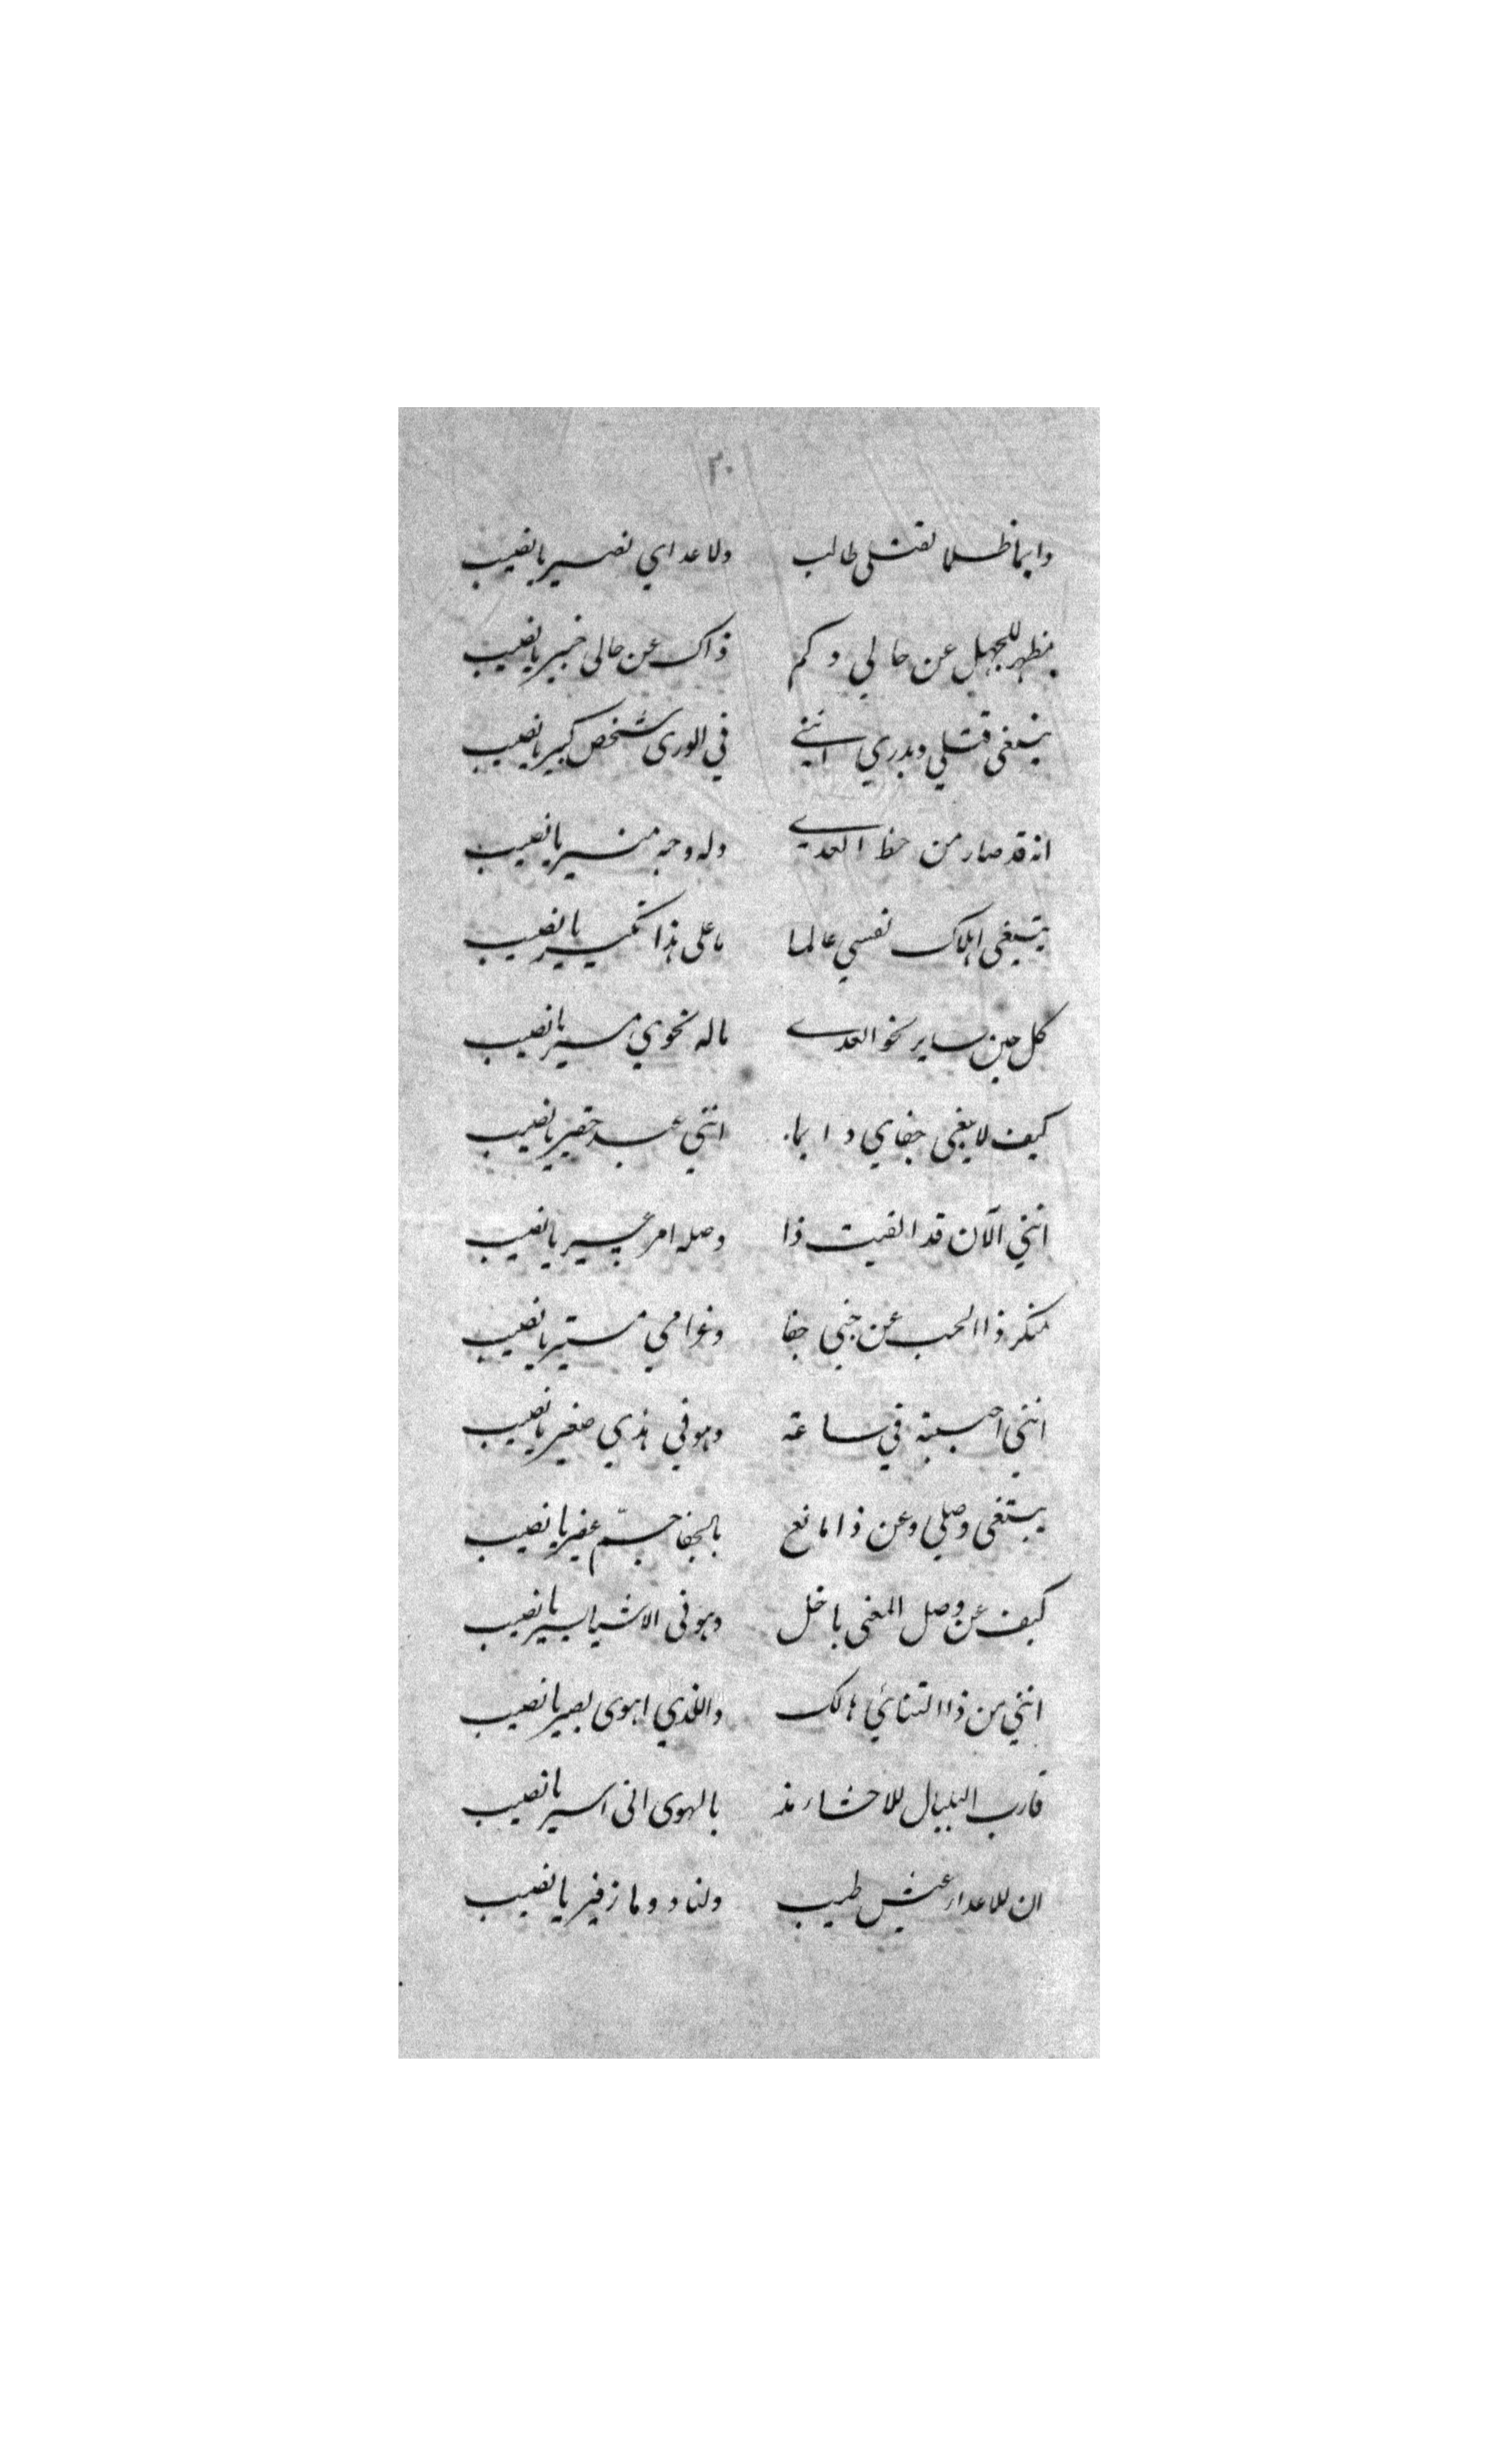 ٣٠
دايما ظلما لقتلى طالب ولاعداي نصير يا نصيب
مظهر للجهل عن حالي وكم ذاك عن حالى خبير يا نصيب
يبتغى قتلي ويدري انني في الورى شخص كبير يا نصيب
انه قد صار من حظ العدى وله وجه منير يا نصيب
يبتغى اهلاك نفسي عالما ما على هذا نكير يا نصيب
كل حين ساير نحو العدى ماله نحوي مسير يا نصيب
كيف لا يبغى جفاي دايما انني عبد حقير يا نصيب
انني الآن قد الفيت ذا وصله امر عسير يا نصيب
منكر ذا الحب عن جنبي جفا وغرامي مستير يا نصيب
انني احببته في ساعة وهو في هذي صغير يا نصيب
يبتغى وصلي وعن ذا مانع بالجفا جمّ غفير يا نصيب
كيف عن وصل المعنى باخل وهو فى الاشيا يسير يا نصيب
انني من ذا التنائي هالك والذي اهوى بصير يا نصيب
قارب البلبال للاحشاء مذ بالهوى انى اسير يا نصيب
ان للاعداء عيش طيب ولنا دوما زفير يا نصيب